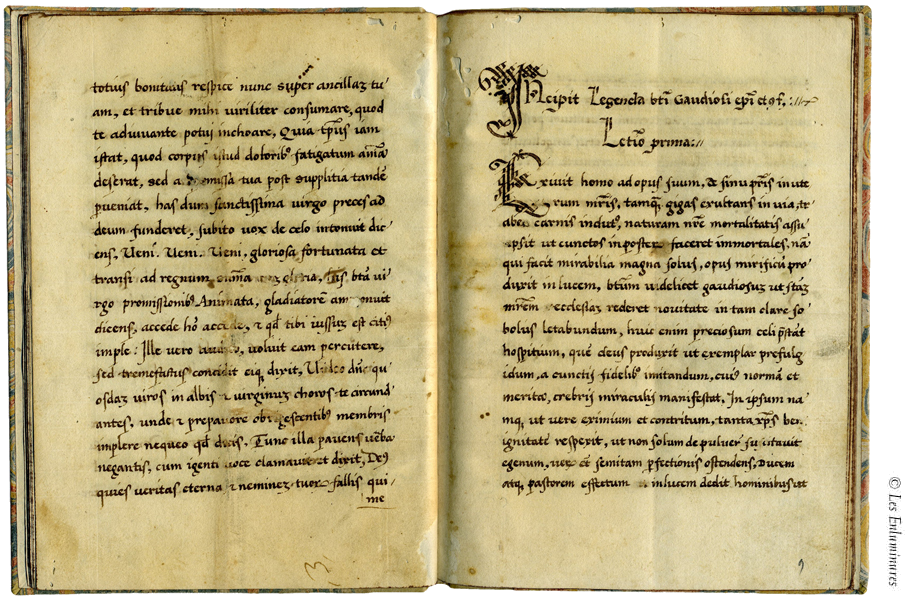 totius bonitatis respice nunc super ancillaz tu/
am, et tribue mihi viriliter consumare, quod
te adiuvante potui inchoare, Quia tps iam
istat, quod corpus istud dolorib9 fatigatum
deserat, sed a missa tua post supplitia tandē
perveniat, has dum sanctissima virgo preces ad
deum funderet, subito vox de celo intonuit dic
ens, Veni. Veni. Veni, gloriosa fortunata et
transi ad regnum gloria, btā vi
rgo promissionib9 Animata, gladiatorē
dicens, accede ho accede, & qd tibi iussuz est citi9
imple: Ille vero voluit eam percutere,
sed tremefactus concidit eiq, dixit, Video dne qu
osdaz viros in albis & virginuz choros te circund
antes, unde & membris
implere nequeo qd dicis. Tunc illa pavens verba
negantis, cum igenti voce clamavit et dixit, De9
quies veritas eterna & neminez fallis qui/
me
13
Incipit Legenda bti Gaudiosi epi et 9f.
Letio prima:
Exivit homo ad opus suum, de sinu pris in ute
rum mris, tamq, gigas exultans in via, tr
abea carnis indut9, naturam nre mortalitatis assu
psit ut cunctos in posterum faceret immortales, nā
qui facit mirabilia magna solus, opus mirificū pro
duxit in lucem, btūm videlicet gaudiosuz ut
mrem ecclesiaz rederet novitate in tam clare so
bolus letabundum, huc enim preciosum celi pstat
hospitium, quē deus produxit ut exemplar prefulg
idum, a cunctis fidelib9 imitandum, cui9 normā et
merita, crebris miraculis manifestat. In ipsum na
mq, ut vere eximium et contritum, tanta xps ben
ignitate respexit, ut non solum de pulvere
egenum, semitam pfectionis ostendens, Ducem
atq, pastorem effectum in lucem dedit hominibus
© Les Enluminures